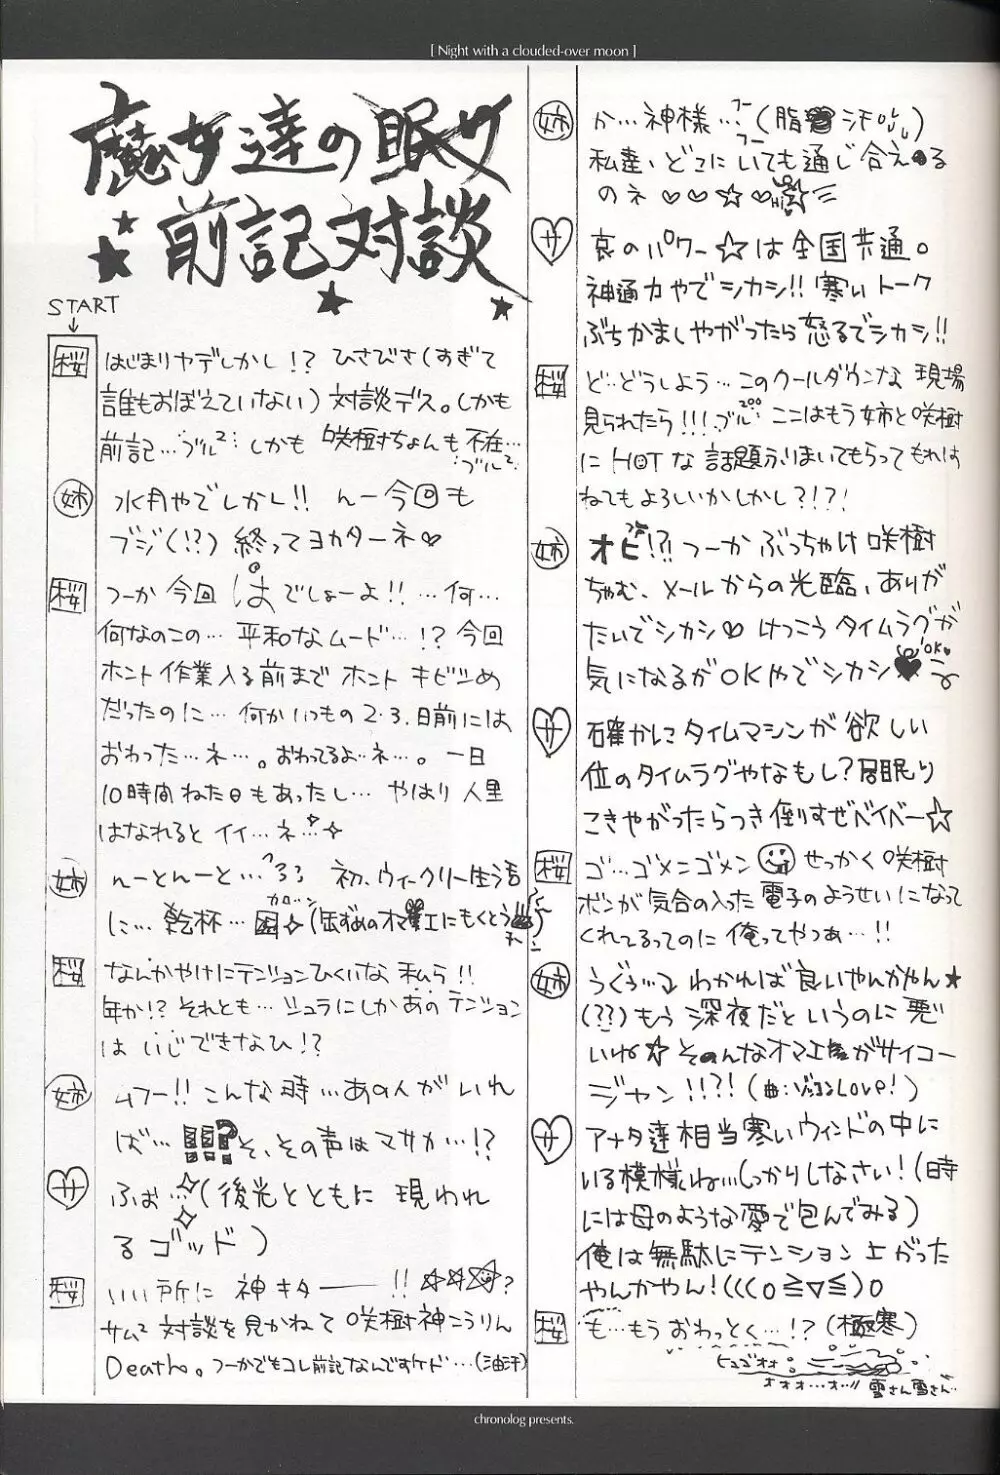 [ Night with a clouded-over moon ]
魔女達の眠り
前記対談
START
桜 はじまりヤデしかし!? ひさびさ(すぎて
誰もおぼえていない)対談デス。しかも
前記…ブル² しかも 咲樹ちょんも不在…
ブル²
姉 水月やでしかし!! んー今回も
ブジ(!?)終ってヨカターネ♡
桜 つーか今回はでしょーよ!! …何…
何なのこの… 平和なムード…!? 今回
ホント作業入る前まで ホント キビシめ
だったのに… 何かいつもの2・3.日前には
おわった…ネ…。おわってるよ…ネ…。一日
10時間ねた日もあったし… やはり人里
はなれるとイイ…ネ…
姉 んーとんーと… 初、ウィークリー生活
に… 乾杯…
カローン
桜 なんかやけにテンションひくいな 私ら!!
年か!? それとも… シュラにしかあのテンション
は いじできなひ!?
姉 ムフー!! こんな時…あの人がいれ
ば… !!!? そ、その声はマサカ…!?
サ ふぉ…(後光とともに 現われ
るゴッド)
桜 いい所に 神キター――!! ☆☆☆?
サム² 対談を見かねて 咲樹神こうりん
Death。つーかでもコレ前記なんですケド…(油汗)
姉 か…神様…(脂 汗)
フー フー
私達、どこにいても通じ合える
のネ♡♡☆♡
Hi
サ 哀のパワー☆は全国共通。
神通力やでシカシ!! 寒いトーク
ぶちかましやがったら怒るでシカシ!!
桜 ど…どうしよう…このクールダウンな 現場
見られたら!!! ブル²⁰⁰ ここはもう姉と咲樹
に HOTな 話題ふりまいてもらってもれは
ねてもよろしいかしかし?!?!
姉 オビ!?! つーか ぶっちゃけ咲樹
ちゃむ、メールからの光臨、ありが
たいでシカシ♡ けっこうタイムラグが
気になるがOKやでシカシ♥
OK♥
サ 確かにタイムマシンが欲しい
位のタイムラグやなもし?居眠り
こきやがったらつき倒すぜベイベー☆
桜 ゴ…ゴメニゴメン せっかく咲樹
ポンが気合の入った電子のようせいになって
くれてるってのに 俺ってやつぁ…!!
姉 うぐぅ… わかれば良いやんかやん★
(??)もう深夜だというのに悪
いね☆ そのんなオマエ達がサイコー
ジャン!!?! (曲:ゾヨンLove!)
サ アナタ達相当寒いウィンドの中に
いる模様ね…しっかりしなさい!(時
には母のような愛で包んでみる)
俺は無駄にテンション上がった
やんかやん!(((o≧▽≦)o
桜 も…もう おわっとく…!?(極寒)
ヒュゴオオ
オオオ…オ…!! 雪さん雪さん…
chronolog presents.